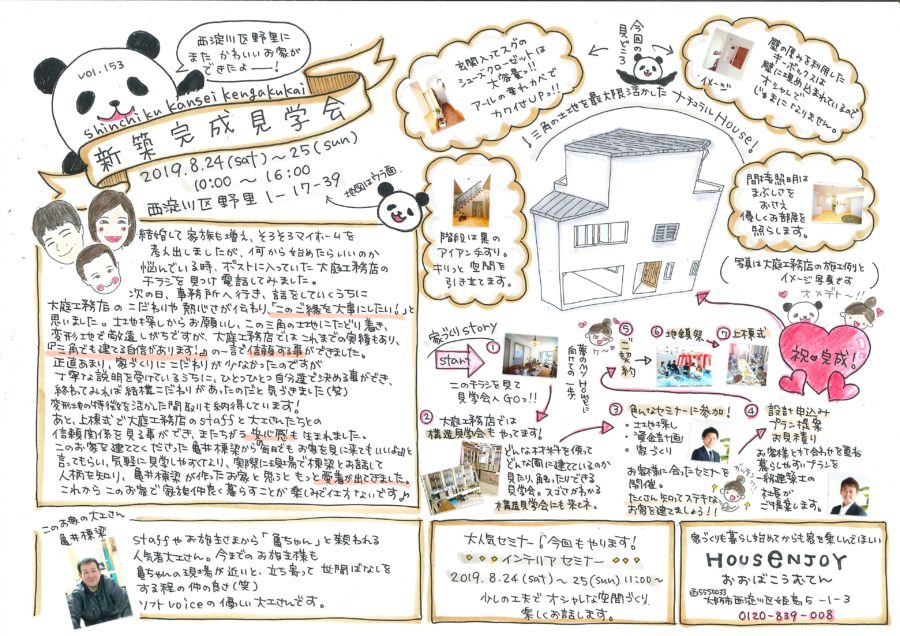 vol.153
西淀川区野里に
また、かわいいお家が
できたよーー!
shinchiku kansei kengakukai
新築完成見学会
2019.8.24(sat)~25(sun)
10:00 ~ 16:00
西淀川区野里1-17-39
地図はウラ面
玄関入ってスグの
シューズクローゼットは
大容量!!
アールの垂れカベで
カワイさUP!!
今回の
見どころ
壁の厚みを利用した
キーボックスは
壁に埋め込まれているので
オシャレで
じゃまになりません。
イメージ
三角の土地を最大限活かしたナチュラルHouse!
階段は黒の
アイアン手すり。
キリっと空間を
引き立てます。
間接照明は
まぶしさを
おさえ
優しくお部屋を
照らします。
(写真は大庭工務店の施工例と
イメージ写真です)
オメデトー!!
結婚して家族も増え、そろそろマイホームを
考え出しましたが、何から始めたらいいのか
悩んでいる時、ポストに入っていた大庭工務店の
チラシを見つけ電話してみました。
次の日、事務所へ行き、話をしていくうちに
大庭工務店のこだわりや熱心さが伝わり、「このご縁を大事にしたい!」と
思いました。土地も探しからお願いし、この三角の土地にたどり着き、
変形地で敬遠しがちですが、大庭工務店ではこれまでの実績もあり、
『三角でも建てる自信があります!』の一言で信頼する事ができました。
正直あまり、家づくりにこだわりが少なかったのですが
丁寧な説明を受けているうちに、ひとつひとつ自分達で決める事ができ、
終わてみれば結構こだわりがあったのだと気づきました(笑)
変形地の特徴を活かした間取りも納得しています!
あと、上棟式で大庭工務店のstaffと大工さんたちとの
信頼関係を見る事ができ、またちがった安心感も生まれました。
このお家を建ててくださった亀井棟梁から『毎日でもお家を見に来てもいいよ』と
言ってもらい、気軽に見学しやすくなり、実際に現場で棟梁とお話して
人柄を知り、亀井棟梁が作ったお家と思うともっと愛着が出てきました。
これからこのお家で家族仲良く暮らすことが楽しみで仕方ないです♪
家づくりstory
start
①
このチラシを見て
見学会へGO!!
②
大庭工務店では
構造見学会もやってます!
どんな木材を使って
どんな風に建てているのか
見たり、触ったりできる
見学会。スゴさがわかる
構造見学会にも来てネ。
③
色んなセミナーに参加!
・土地探し
・資金計画
・家づくり
お客様に合ったセミナーを
開催。
たくさん知ってステキな
お家を建てましょう!!
④
設計申込み
プラン提案
お見積り
お客様と打合わせを重ね
暮らしやすいプランを
一級建築士の
社長が
ご提案します。
⑤
ご契約
夢のMy Homeに
向けての一歩
⑥地鎮祭
⑦上棟式
祝完成!
このお家の大工さん
亀井棟梁
staffやお施主さまから「亀ちゃん」と親われる
人気者大工さん。今までのお施主様も
亀ちゃんの現場が近いと、立ち寄って世間ばなしを
する程の仲の良さ(笑)
ソフトvoiceの優しい大工さんです。
大人気セミナー!今回もやります!
インテリアセミナー
2019.8.24(sat)~25(sun)11:00~
少しの工夫でオシャレな空間づくり
楽しくお話します。
家づくりも暮らし始めてからも家を楽しんでほしい
HOUSENJOY
おおばこうむてん
〒5550033
大阪市西淀川区姫島5-1-3
0120-839-008